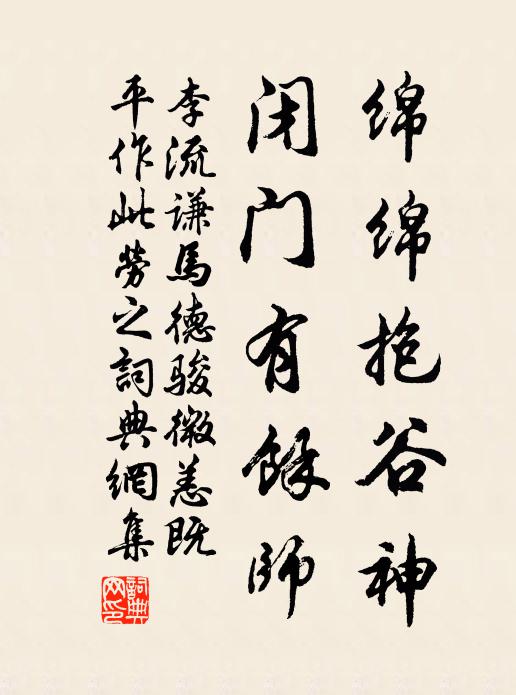 绵绵抱谷神
闭门有馀师
李流谦马德骏微恙既
平作此劳之词典網集
詞典網印